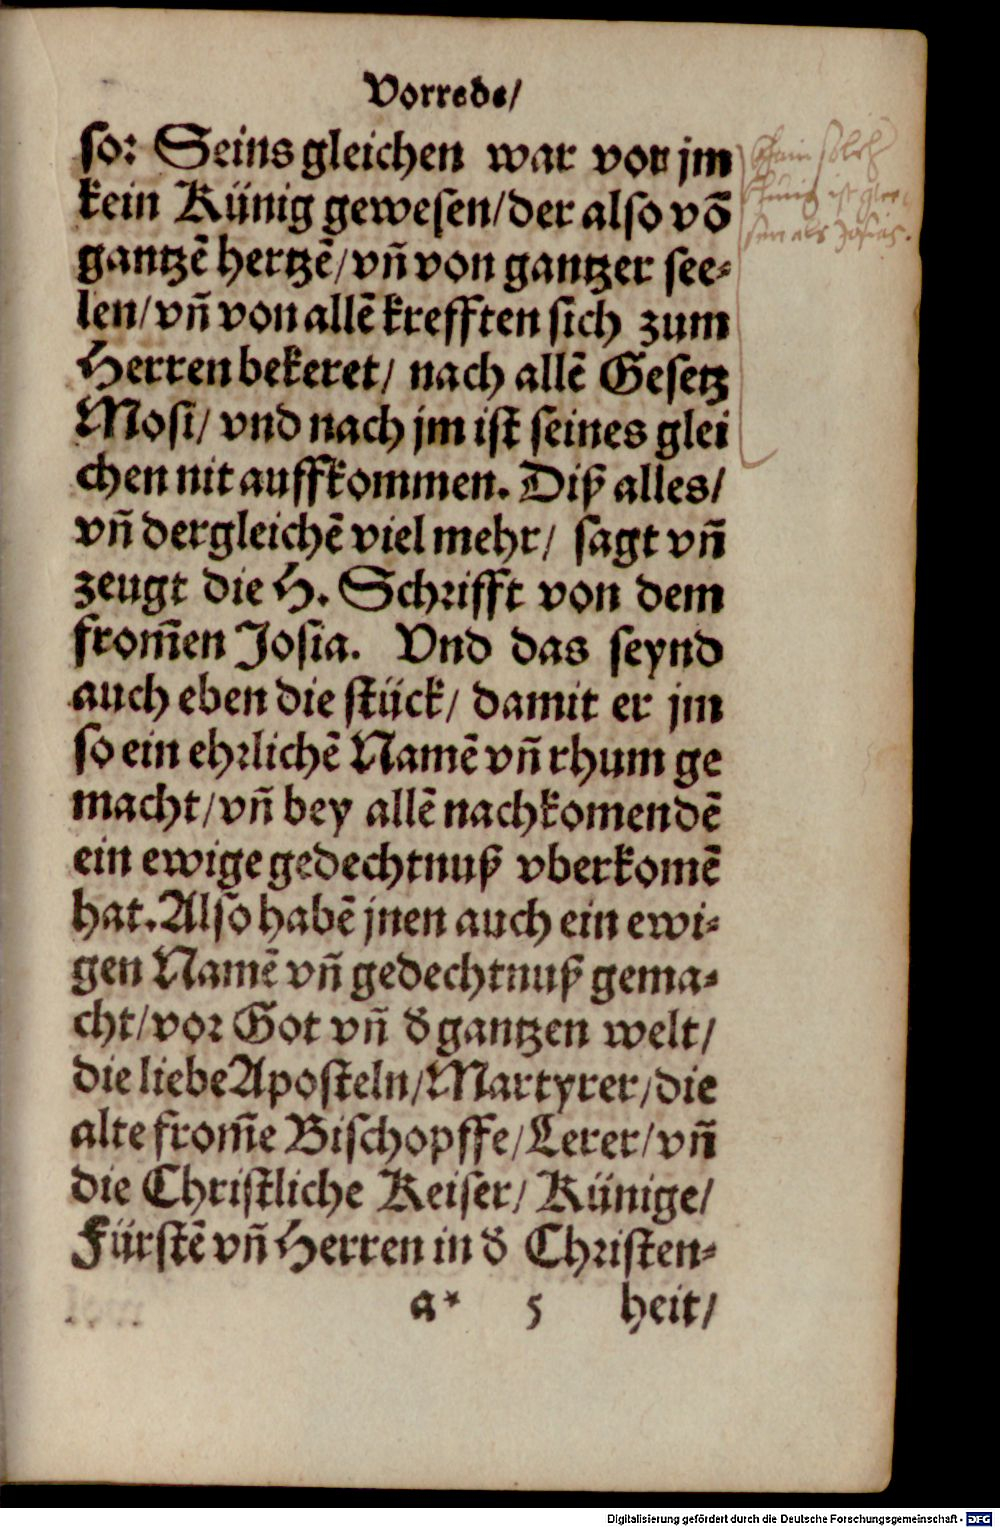 Vorrede/
so: Seins gleichen war vor jm
kein Künig gewesen/der also võ
gantzẽ hertzẽ/vñ von gantzer see⸗
len/vñ von allẽ krefften sich zum
Herren bekeret/ nach allẽ Gesetz
Mosi/ vnd nach jm ist seines glei
chen nit auffkommen. Diß alles/
vñ dergleichẽ viel mehr/ sagt vñ
zeugt die H. Schrifft von dem
from̃en Josia. Vnd das seynd
auch eben die stück/ damit er jm
so ein ehrlichẽ Namẽ vñ rhum ge
macht/vñ bey allẽ nachkomendẽ
ein ewige gedechtnuß vberkomẽ
hat. Also habẽ jnen auch ein ewi⸗
gen Namẽ vñ gedechtnuß gema⸗
cht/vor Got vñ d̕ gantzen welt/
die liebe Aposteln/Martyrer/die
alte from̃e Bischopffe/Lerer/vñ
die Christliche Keiser/ Künige/
Fürstẽ vñ Herren in d̕ Christen⸗
a* 5 heit/
Khain solch
Khünig ist
als Josias.
Digitalisierung gefördert durch die Deutsche Forschungsgemeinschaft - DFG